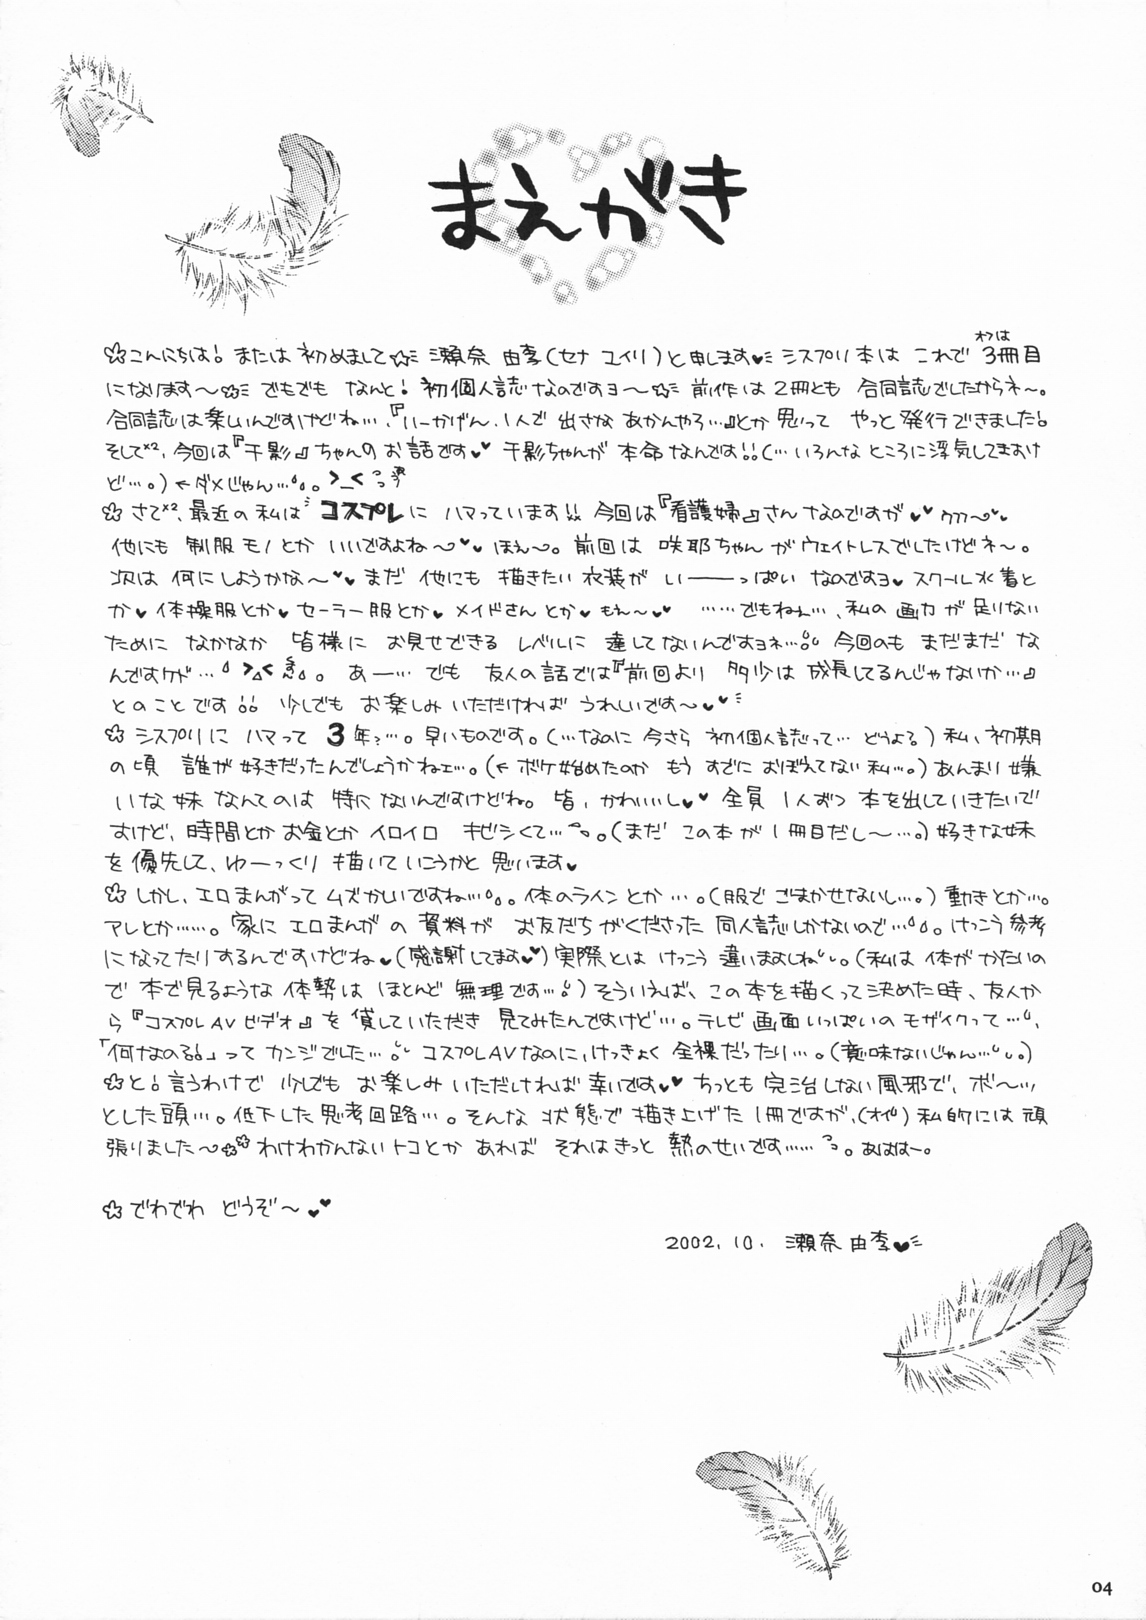 まえがき
✿こんにちは! または 初めまして☆ミ 瀬奈 由李(セナ ユイリ)と申します♥ミ シスプリ本は これで 3冊目
になります〜☆ミ でもでも なんと! 初個人誌なのですヨ〜☆ミ 前作は 2冊とも 合同誌でしたからネ〜。
合同誌は楽しいんですけどね…、『いーかげん、1人で 出さな あかんやろ…』とか思って やっと発行できました!
そして×2、今回は『千影』ちゃんのお話です♥ 千影ちゃんが 本命なんです!!(…いろんな ところに浮気してますけ
ど…。)←ダメじゃん…。>_<
✿さて×2、最近の私は コスプレに ハマっています!! 今回は『看護婦』さん なのですが♥♥ ウフフ〜♥♥
他にも 制服モノとか いいですよね〜♥♥ ほえ〜。前回は 咲耶ちゃん がウェイトレスでしたけどネ〜。
次は 何にしようかな〜♥♥ まだ 他にも 描きたい 衣装が い――っぱい なのですヨ♥ スクール水着と
か♥体操服とか♥セーラー服とか♥メイドさんとか♥もえ〜♥♥ ……でもねぇ…、私の画力が足りない
ために なかなか 皆様に お見せできる レベルに 達してないんですヨネ…。今回のも まだまだ な
んですケド… >_<。 あー… でも 友人の話では『前回より 多少は 成長してるんじゃないか…』
とのことです!! 少しでも お楽しみ いただければ うれしいです〜♥♥ミ
✿シスプリに ハマって 3年?…。早いものです。(…なのに 今さら 初個人誌って… どうよ?) 私、初期
の頃 誰が好きだったんでしょうかねェ…。(←ボケ始めたのか もう すでに おぼえてない私…。) あんまり嫌
いな妹 なんてのは 特にないんですけどね。皆、かわいいし♥♥ 全員 1人ずつ 本を出していきたいで
すけど、時間とかお金とか イロイロ キビシくて…。(まだ この本が 1冊目だし〜…。)好きな妹
を優先して、ゆーっくり 描いていこうかと 思います♥
✿しかし、エロまんがって ムズかしいですね…。体のラインとか…。(服で ごまかせないし…。)動きとか…。
アレとか……。家に エロまんが の 資料が お友だちがくださった 同人誌しかないので…。けっこう参考
になってたりするんですけどね♥(感謝してます♥)実際とは けっこう 違いますしね。(私は 体がかたいの
で 本で見るような 体勢は ほとんど 無理です…)そういえば、この本を描くって決めた時、友人か
ら『コスプレAVビデオ』を貸していただき 見てみたんですけど…。テレビ画面いっぱいのモザイクって…、
「何なの?!」って カンジでした…。コスプレAVなのに、けっきょく 全裸だったり…。(意味ないじゃん…。)
✿と!言うわけで 少しでも お楽しみ いただければ幸いです♥♥ ちっとも 完治しない風邪で、ボ〜ッ
とした頭…。低下した思考回路…。そんな 状態で 描き上げた 1冊ですが、(オイ) 私的には 頑
張りました〜✿✿ わけわかんないトコとか あれば それはきっと 熱のせいです……。あはは―。
✿でわでわ どうぞ〜♥♥
2002.10. 瀬奈 由李♥ミ
04